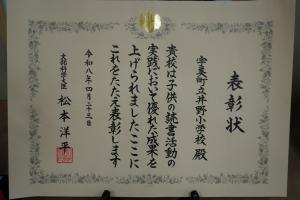 表彰状
宇美町立井野小学校 殿
貴校は子供の読書活動の
実践において優れた成果を
上げられましたここに
これをたたえ表彰します
令和八年四月二十三日
文部科学大臣 松本洋平